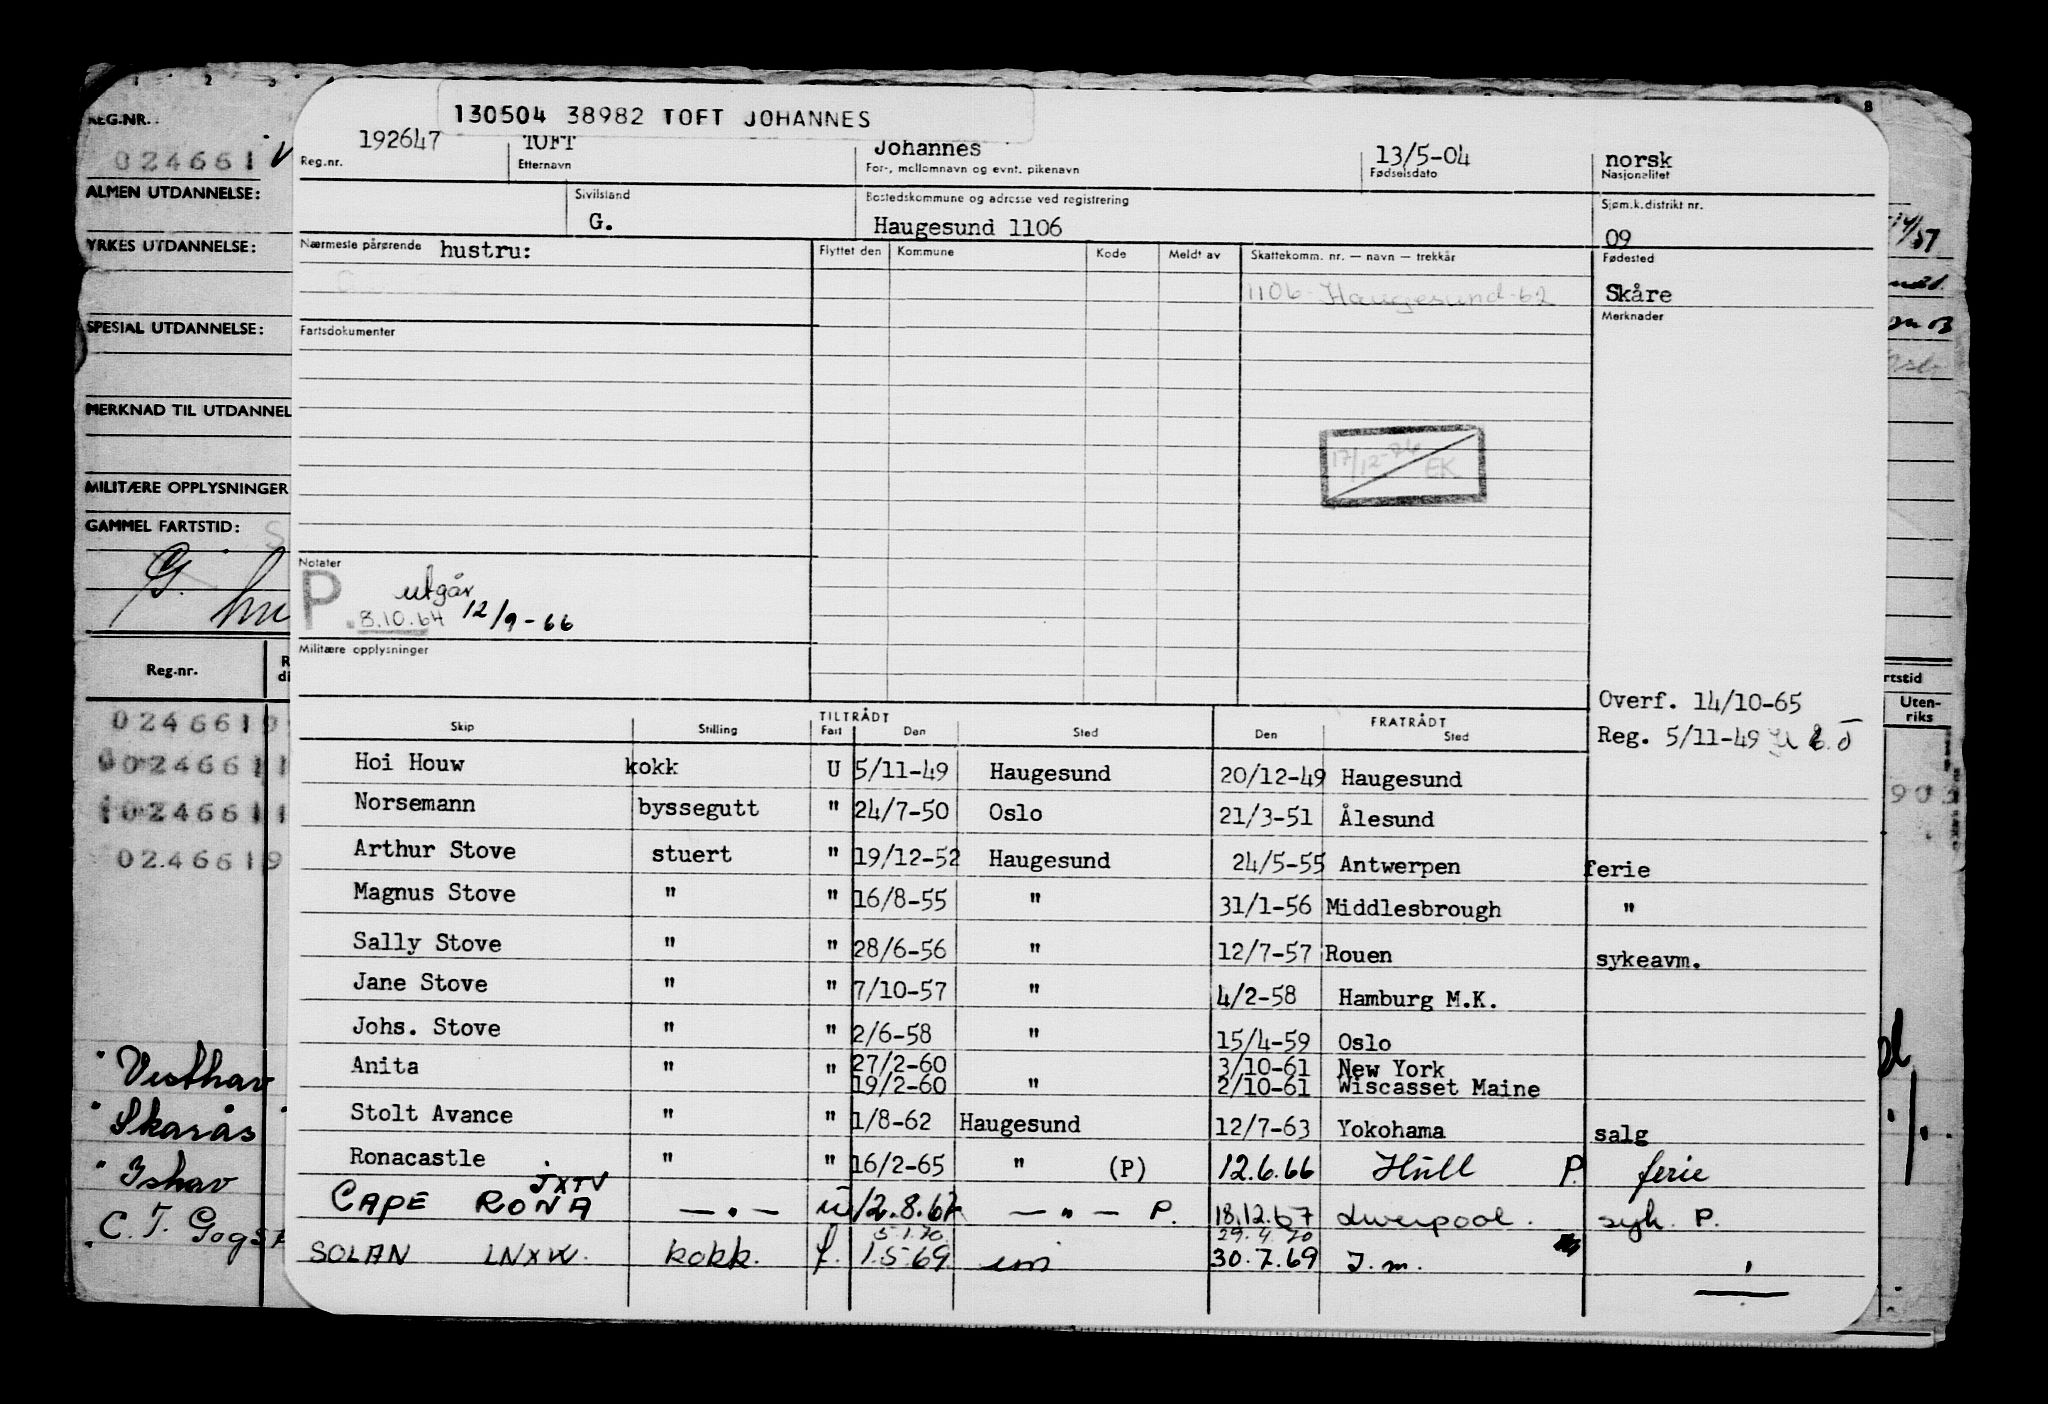 130504 38982 TOFT JOHANNES
REG.NR.
024661
192647 TOFT Johannes 13/5-04 norsk
Reg.nr. Etternavn For-, mellomnavn og evnt. pikenavn Fødselsdato Nasjonalitet
ALMEN UTDANNELSE:
Sivilstand Bostedskommune og adresse ved registrering Sjøm.k.distrikt nr.
G. Haugesund 1106 09
YRKES UTDANNELSE:
Nærmeste pårørende hustru: Flyttet den Kommune Kode Meldt av Skattekomm. nr. — navn — trekkår Fødested
1106 Haugesund-62 Skåre
SPESIAL UTDANNELSE:
Fartsdokumenter Merknader
MERKNAD TIL UTDANNEL
17/12-74 EK
MILITÆRE OPPLYSNINGER
GAMMEL FARTSTID:
Notater
P. utgår
8.10.64 12/9-66
Militære opplysninger
Reg.nr.
Overf. 14/10-65
Reg. 5/11-49
rtstid
Uten-
riks
TILTRÅDT FRATRÅDT
Skip Stilling Fart Den Sted Den Sted
0246619
Hoi Houw kokk U 5/11-49 Haugesund 20/12-49 Haugesund
Norsemann byssegutt " 24/7-50 Oslo 21/3-51 Ålesund
Arthur Stove stuert " 19/12-52 Haugesund 24/5-55 Antwerpen ferie
Magnus Stove " " 16/8-55 " 31/1-56 Middlesbrough "
Sally Stove " " 28/6-56 " 12/7-57 Rouen sykeavm.
Jane Stove " " 7/10-57 " 4/2-58 Hamburg M.K.
Johs. Stove " " 2/6-58 " 15/4-59 Oslo
Anita " " 27/2-60 3/10-61 New York
19/2-60 " 2/10-61 Wiscasset Maine
Stolt Avance " " 1/8-62 Haugesund 12/7-63 Yokohama salg
Ronacastle " " 16/2-65 " (P) 12.6.66 Hull P. ferie
CAPE RONA JXTV —.— u 12.8.67 —"— P. 18.12.67 Liverpool. syk. P.
5.1.70 29.4.70
SOLAN LNXW. kokk. f. 1.5.69 30.7.69 J.m.
Vesthav
Skarås
Ishav
C. T. Gogst